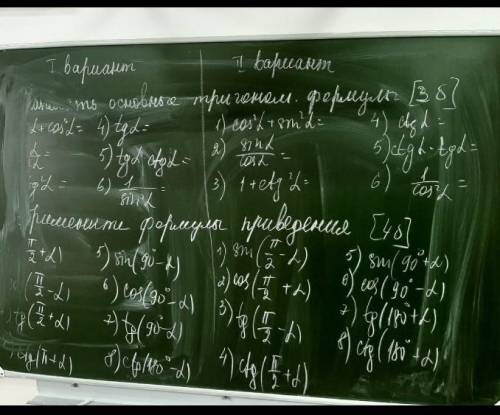 I вариант II вариант
основные тригоном. формулы [3 б]
α+cos²α= 4) tgα= 1) cos²α+sin²α= 4) ctgα=
5) tgα·ctgα= 2) sinα/cosα = 5) ctgα·tgα=
g²α= 6) 1/sin²α = 3) 1+ctg²α= 6) 1/cos²α =
рименить формулы приведения [4б]
π/2+α) 5) sin(90°-α) 1) sin(π/2-α) 5) sin(90°+α)
(π/2-α) 6) cos(90°-α) 2) cos(π/2+α) 6) cos(90°-α)
tg(π/2+α) 7) tg(90°-α) 3) tg(π/2-α) 7) tg(180°+α)
ctg(π+α) 8) ctg(180°-α) 4) ctg(π/2+α) 8) ctg(180°+α)